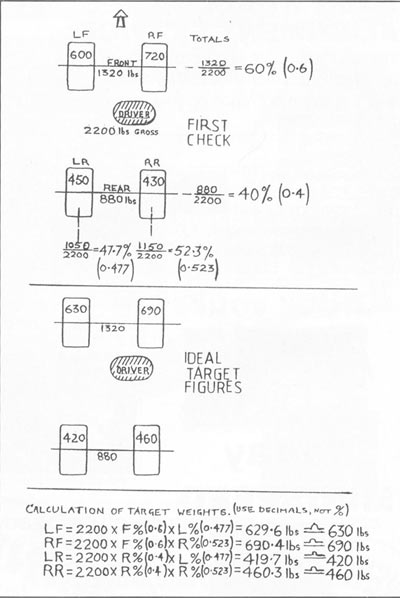 LF RF TOTALS
600 720
FRONT
1320 lbs
1320/2200 = 60% (0.6)
DRIVER
2200 lbs GROSS
FIRST
CHECK
LR RR
450 430
REAR
880 lbs
880/2200 = 40% (0.4)
1050/2200 = 47.7% (0.477) 1150/2200 = 52.3% (0.523)
630 690
1320
DRIVER
IDEAL
TARGET
FIGURES
420 460
880
CALCULATION OF TARGET WEIGHTS. (USE DECIMALS, NOT %)
LF = 2200 x F%(0.6) x L%(0.477) = 629.6 lbs ≏ 630 lbs
RF = 2200 x F%(0.6) x R%(0.523) = 690.4 lbs ≏ 690 lbs
LR = 2200 x R%(0.4) x L%(0.477) = 419.7 lbs ≏ 420 lbs
RR = 2200 x R%(0.4) x R%(0.523) = 460.3 lbs ≏ 460 lbs